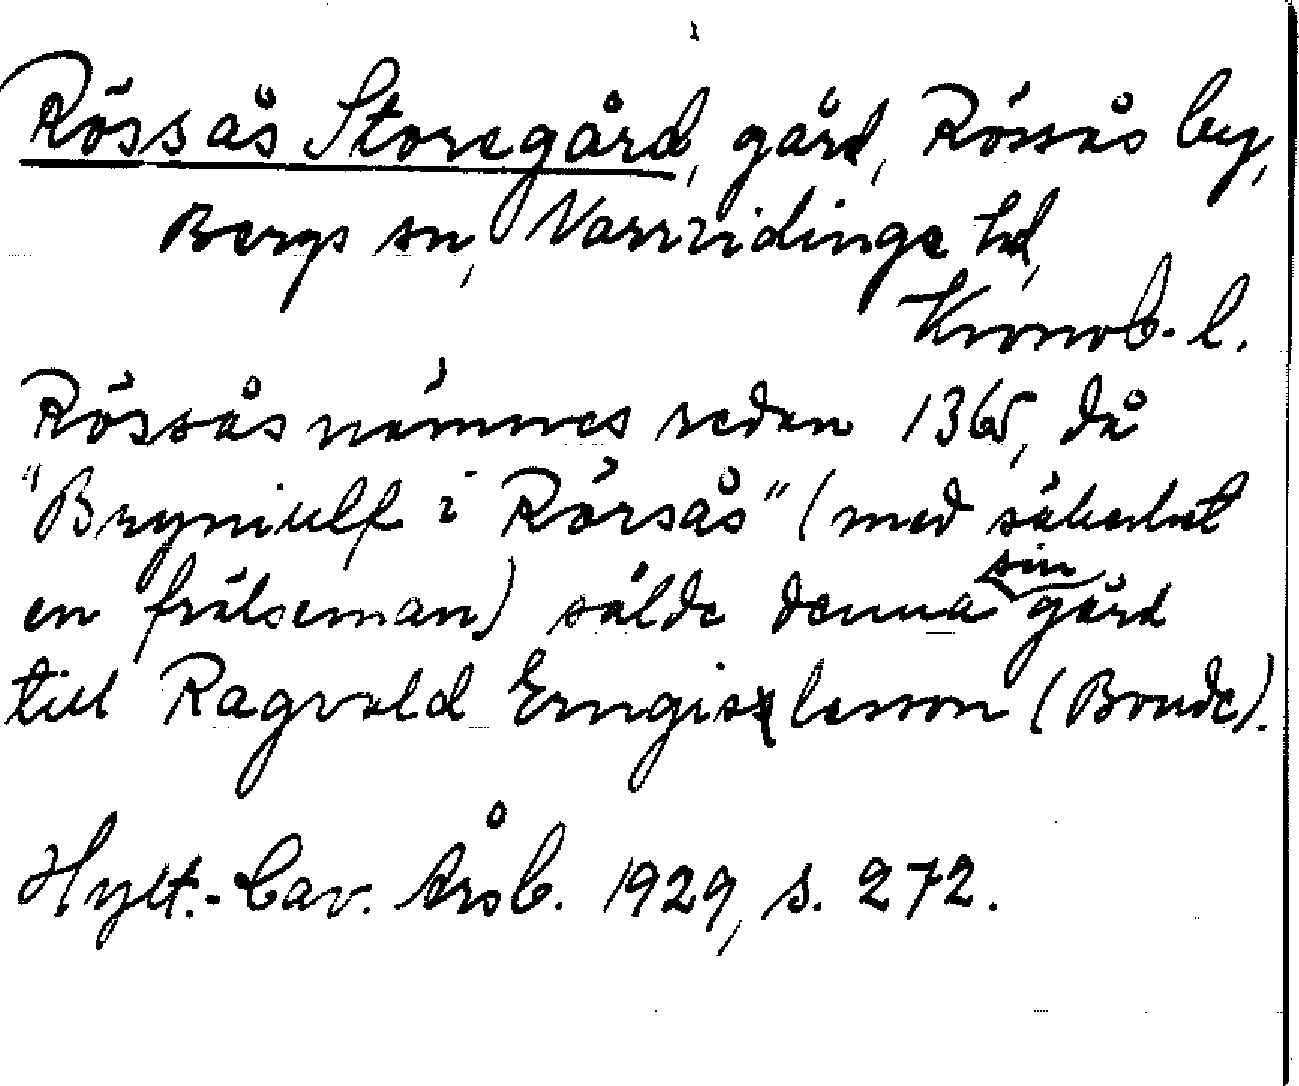 Rössås Storegård, gård, Rössås by,
Bergs sn, Norrvidinge hd,
Kronob. l.
Rössås nämnes sedan 1365, då
"Bryniulf i Rörsås" (med säkerhet
en frälseman) sålde denna sin gård
till Ragvald Erngislesson (Bonde).
Hylt.-Cav. Årsb. 1929, s. 272.